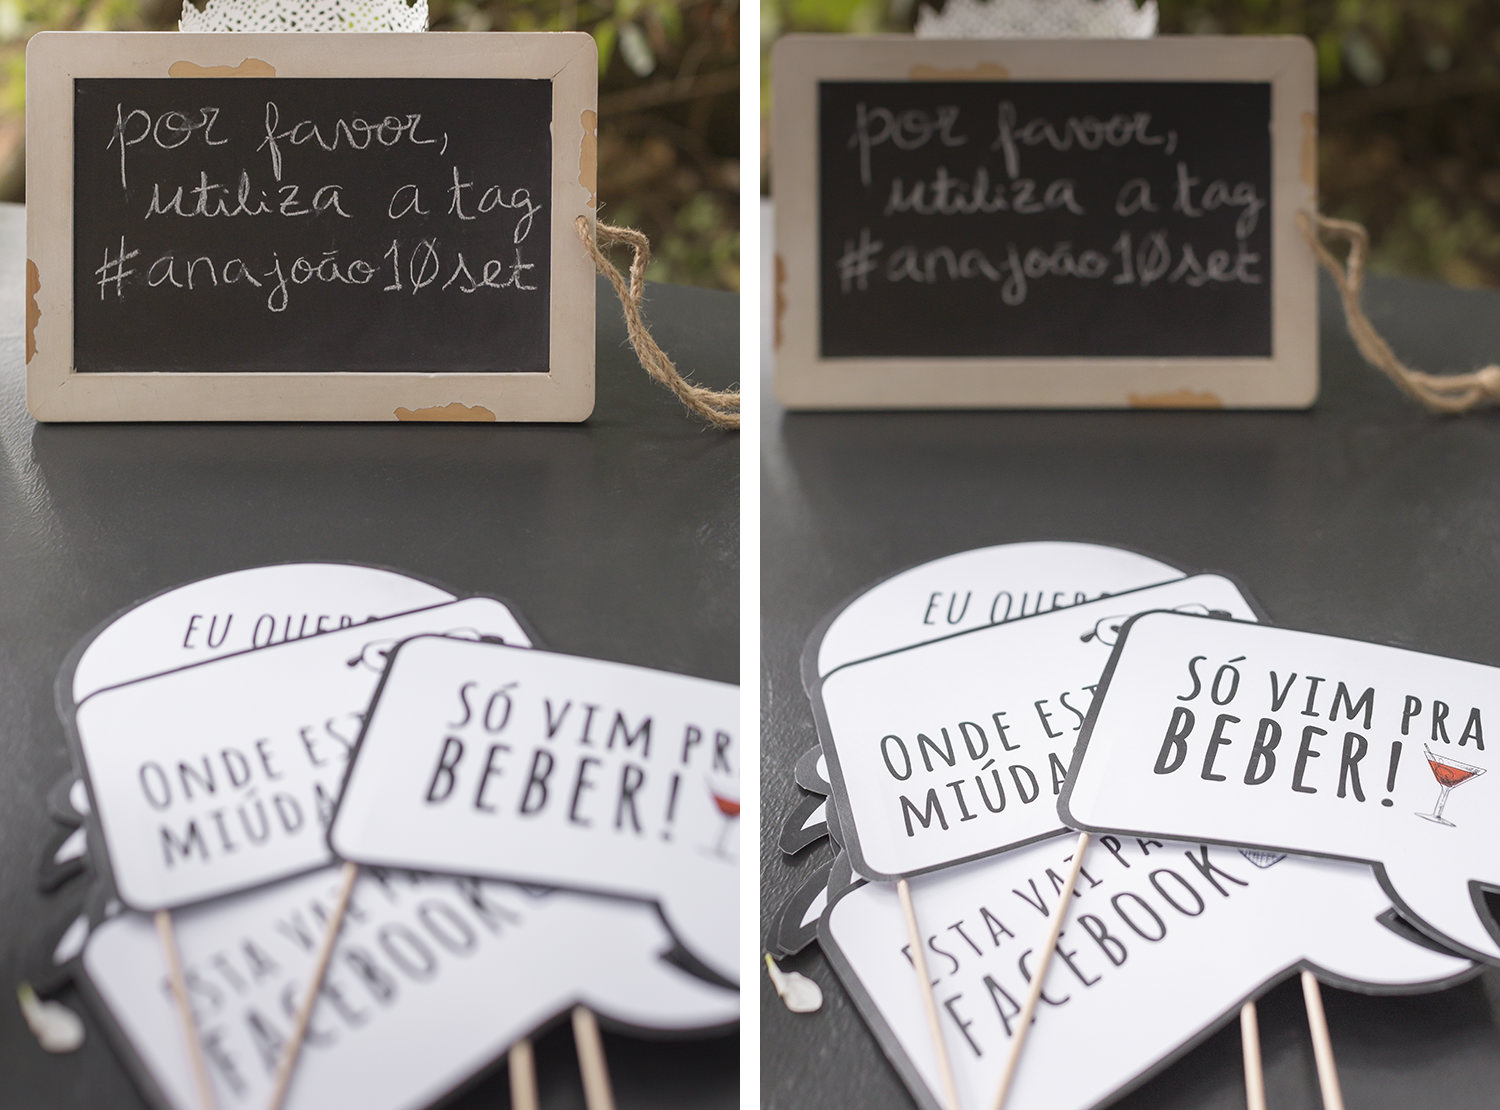 por favor,
utiliza a tag
#anajoão10set
EU QUERO
ONDE EST
MIÚDA
SÓ VIM PR
BEBER!
ESTA VAI PA
FACEBOOK
por favor,
utiliza a tag
#anajoão10set
EU QUERO
ONDE EST
MIÚDA
SÓ VIM PRA
BEBER!
ESTA VAI PA
FACEBOOK